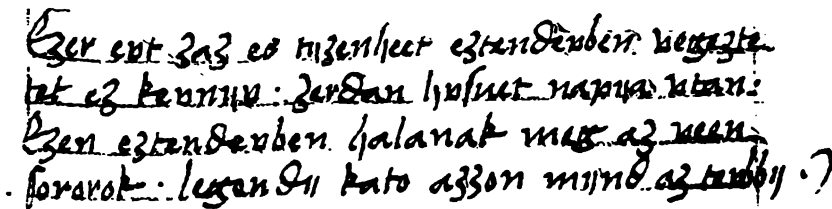 Ezer evt zaz es tyzenheet eztendevben vegezte
tet ez kevnyv : zerdan hvsuet napya vtan :
Ezen eztendevben halanak meg az veen
sororok : legendy kato azzon mynd az tevbby .